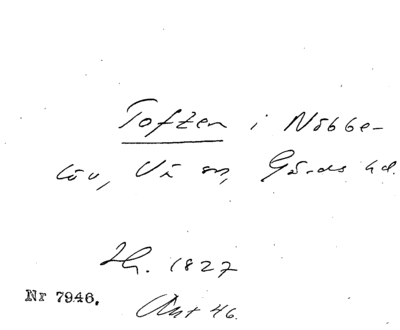 Toften i Nöbbe-
löv, Vä sn, Gärds hd.
Lh. 1827
Nr 7946. Akt 46.